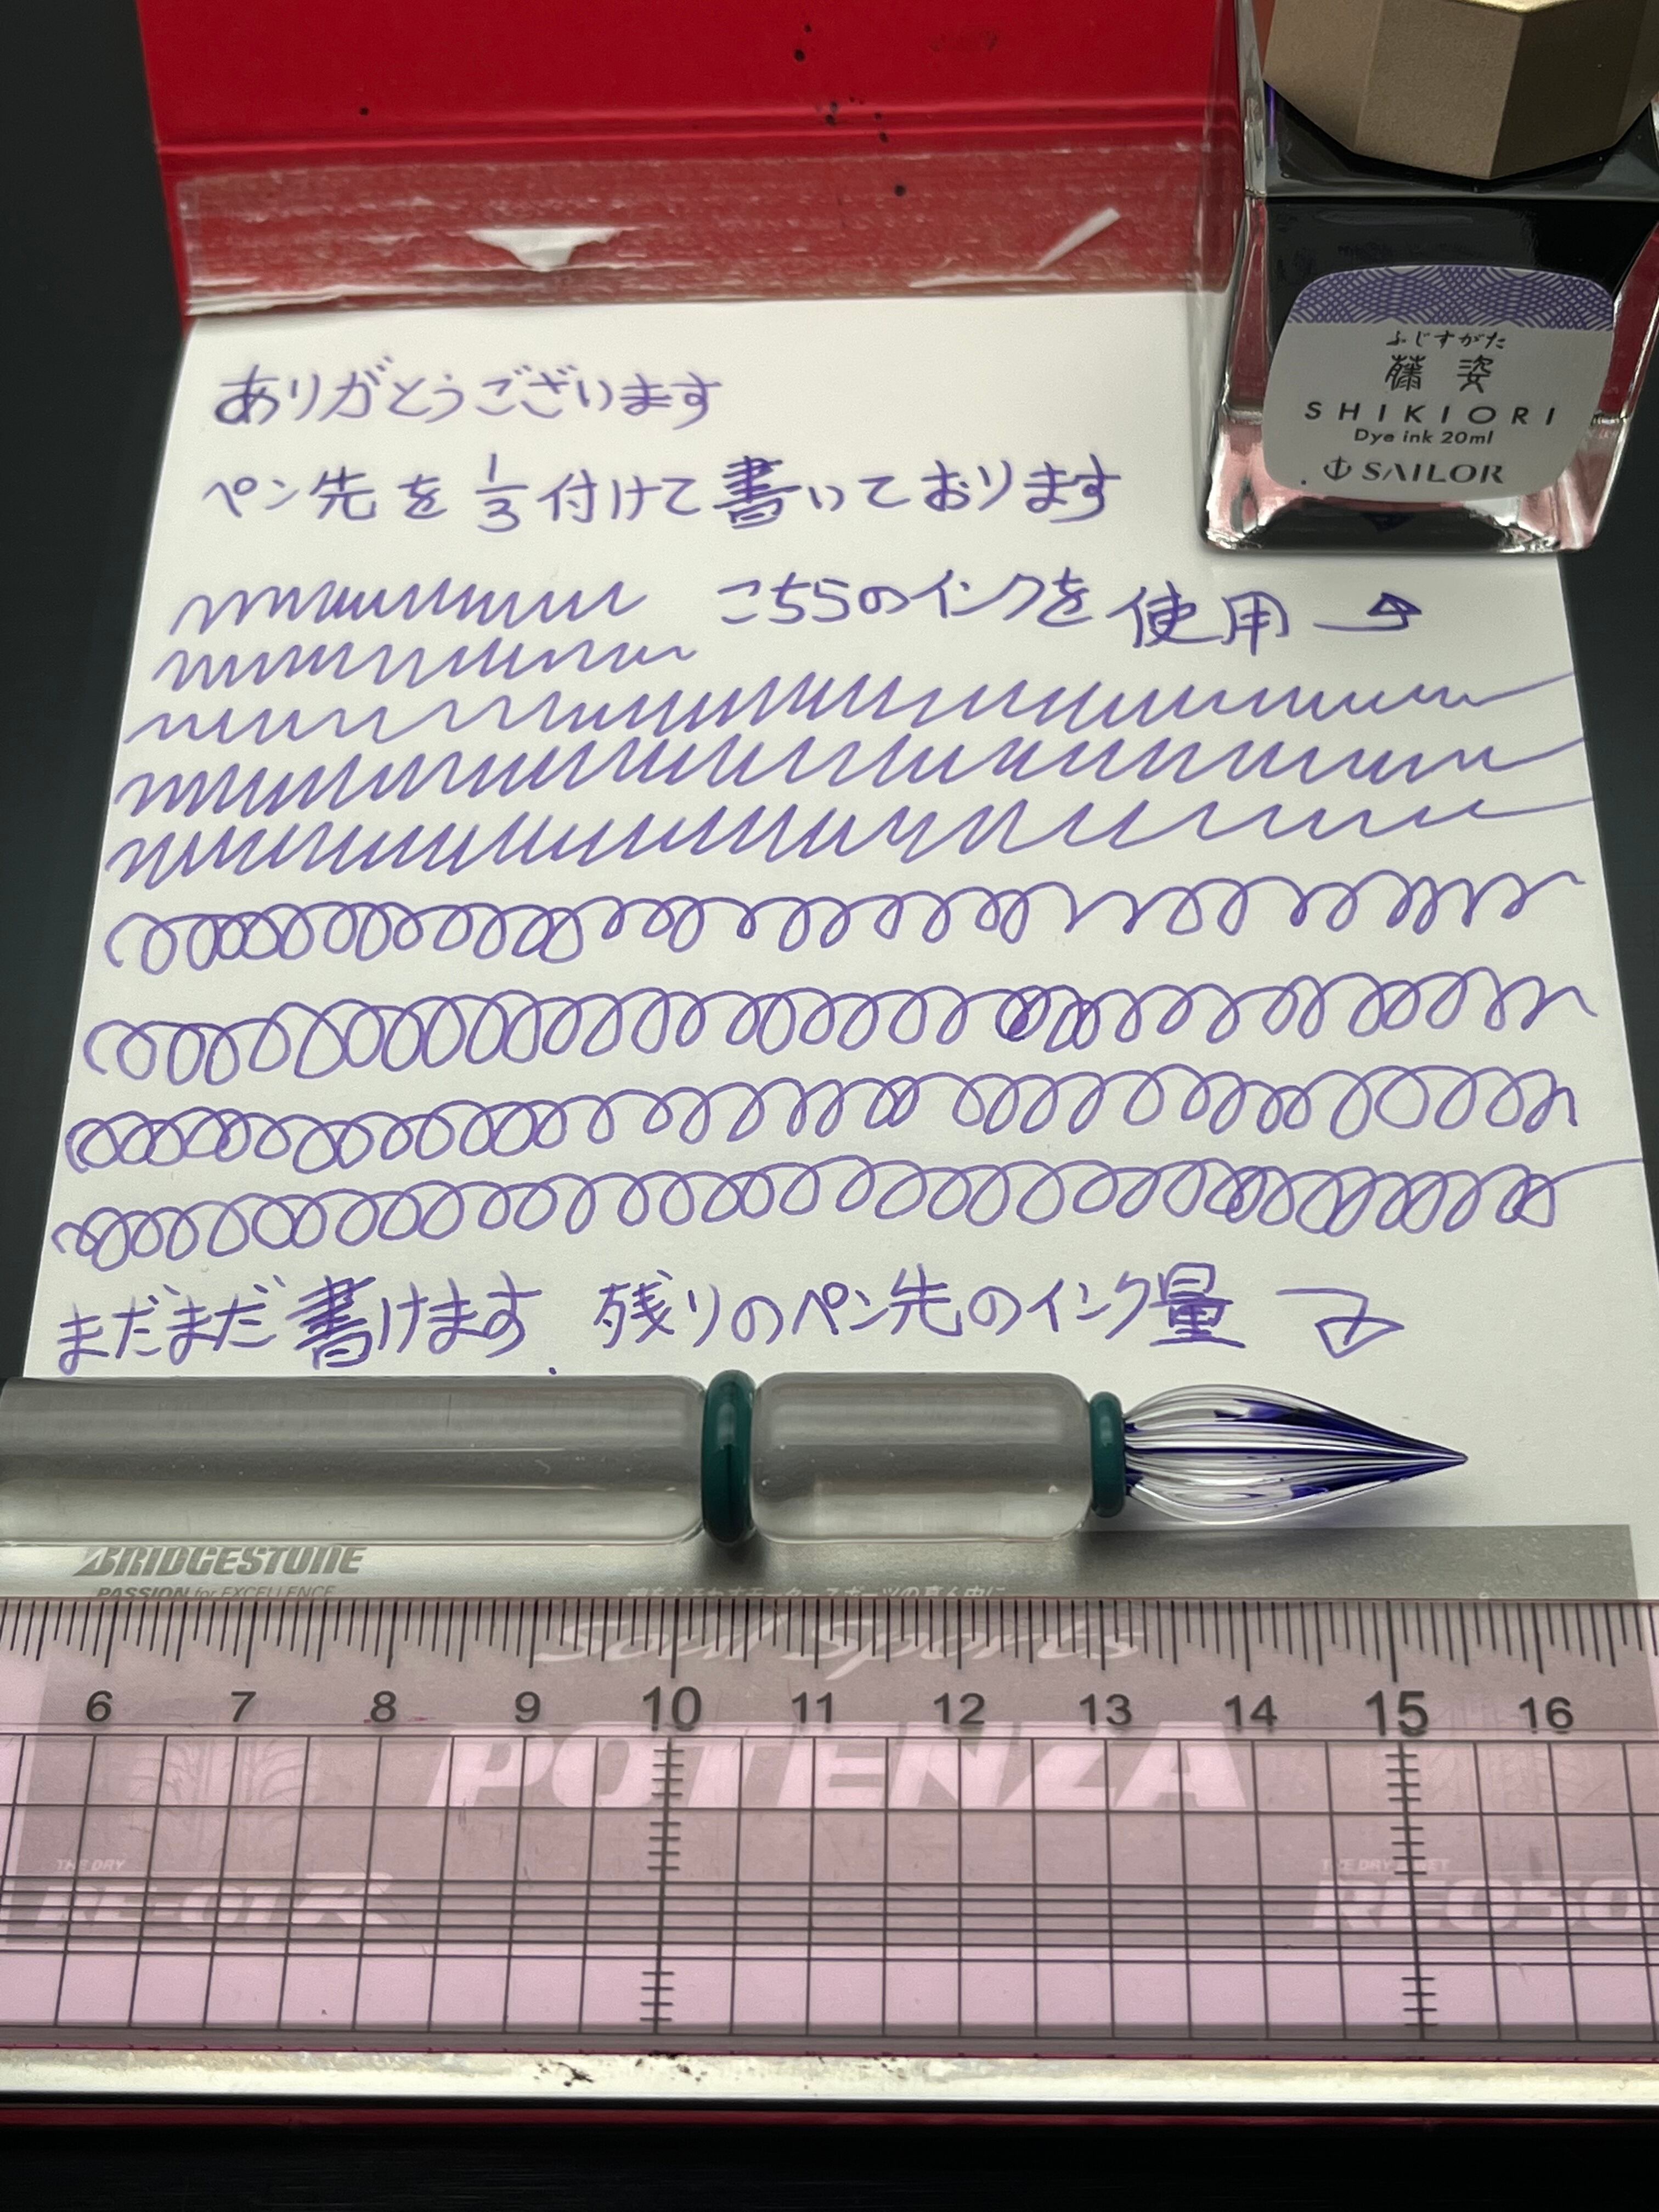 ふじすがた
藤姿
SHIKIORI
Dye ink 20ml
SAILOR
ありがとうございます
ペン先を1/3付けて書いております
こちらのインクを使用→
まだまだ書けます 残りのペン先のインク量
BRIDGESTONE
PASSION for EXCELLENCE
Soul Sports
6 7 8 9 10 11 12 13 14 15 16
POTENZA
THE DRY